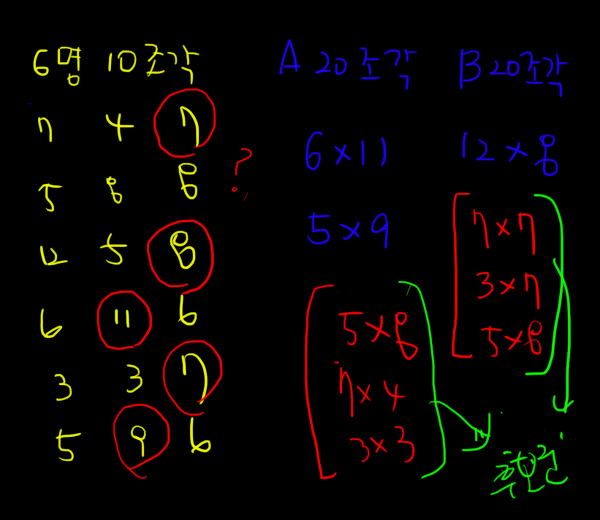 6명 10조각
7 4 7
5 8 8 ?
12 5 8
6 11 6
3 3 7
5 9 6
A 20조각
6×11
5×9
5×8
7×4
3×3
B 20조각
12×8
7×7
3×7
5×8